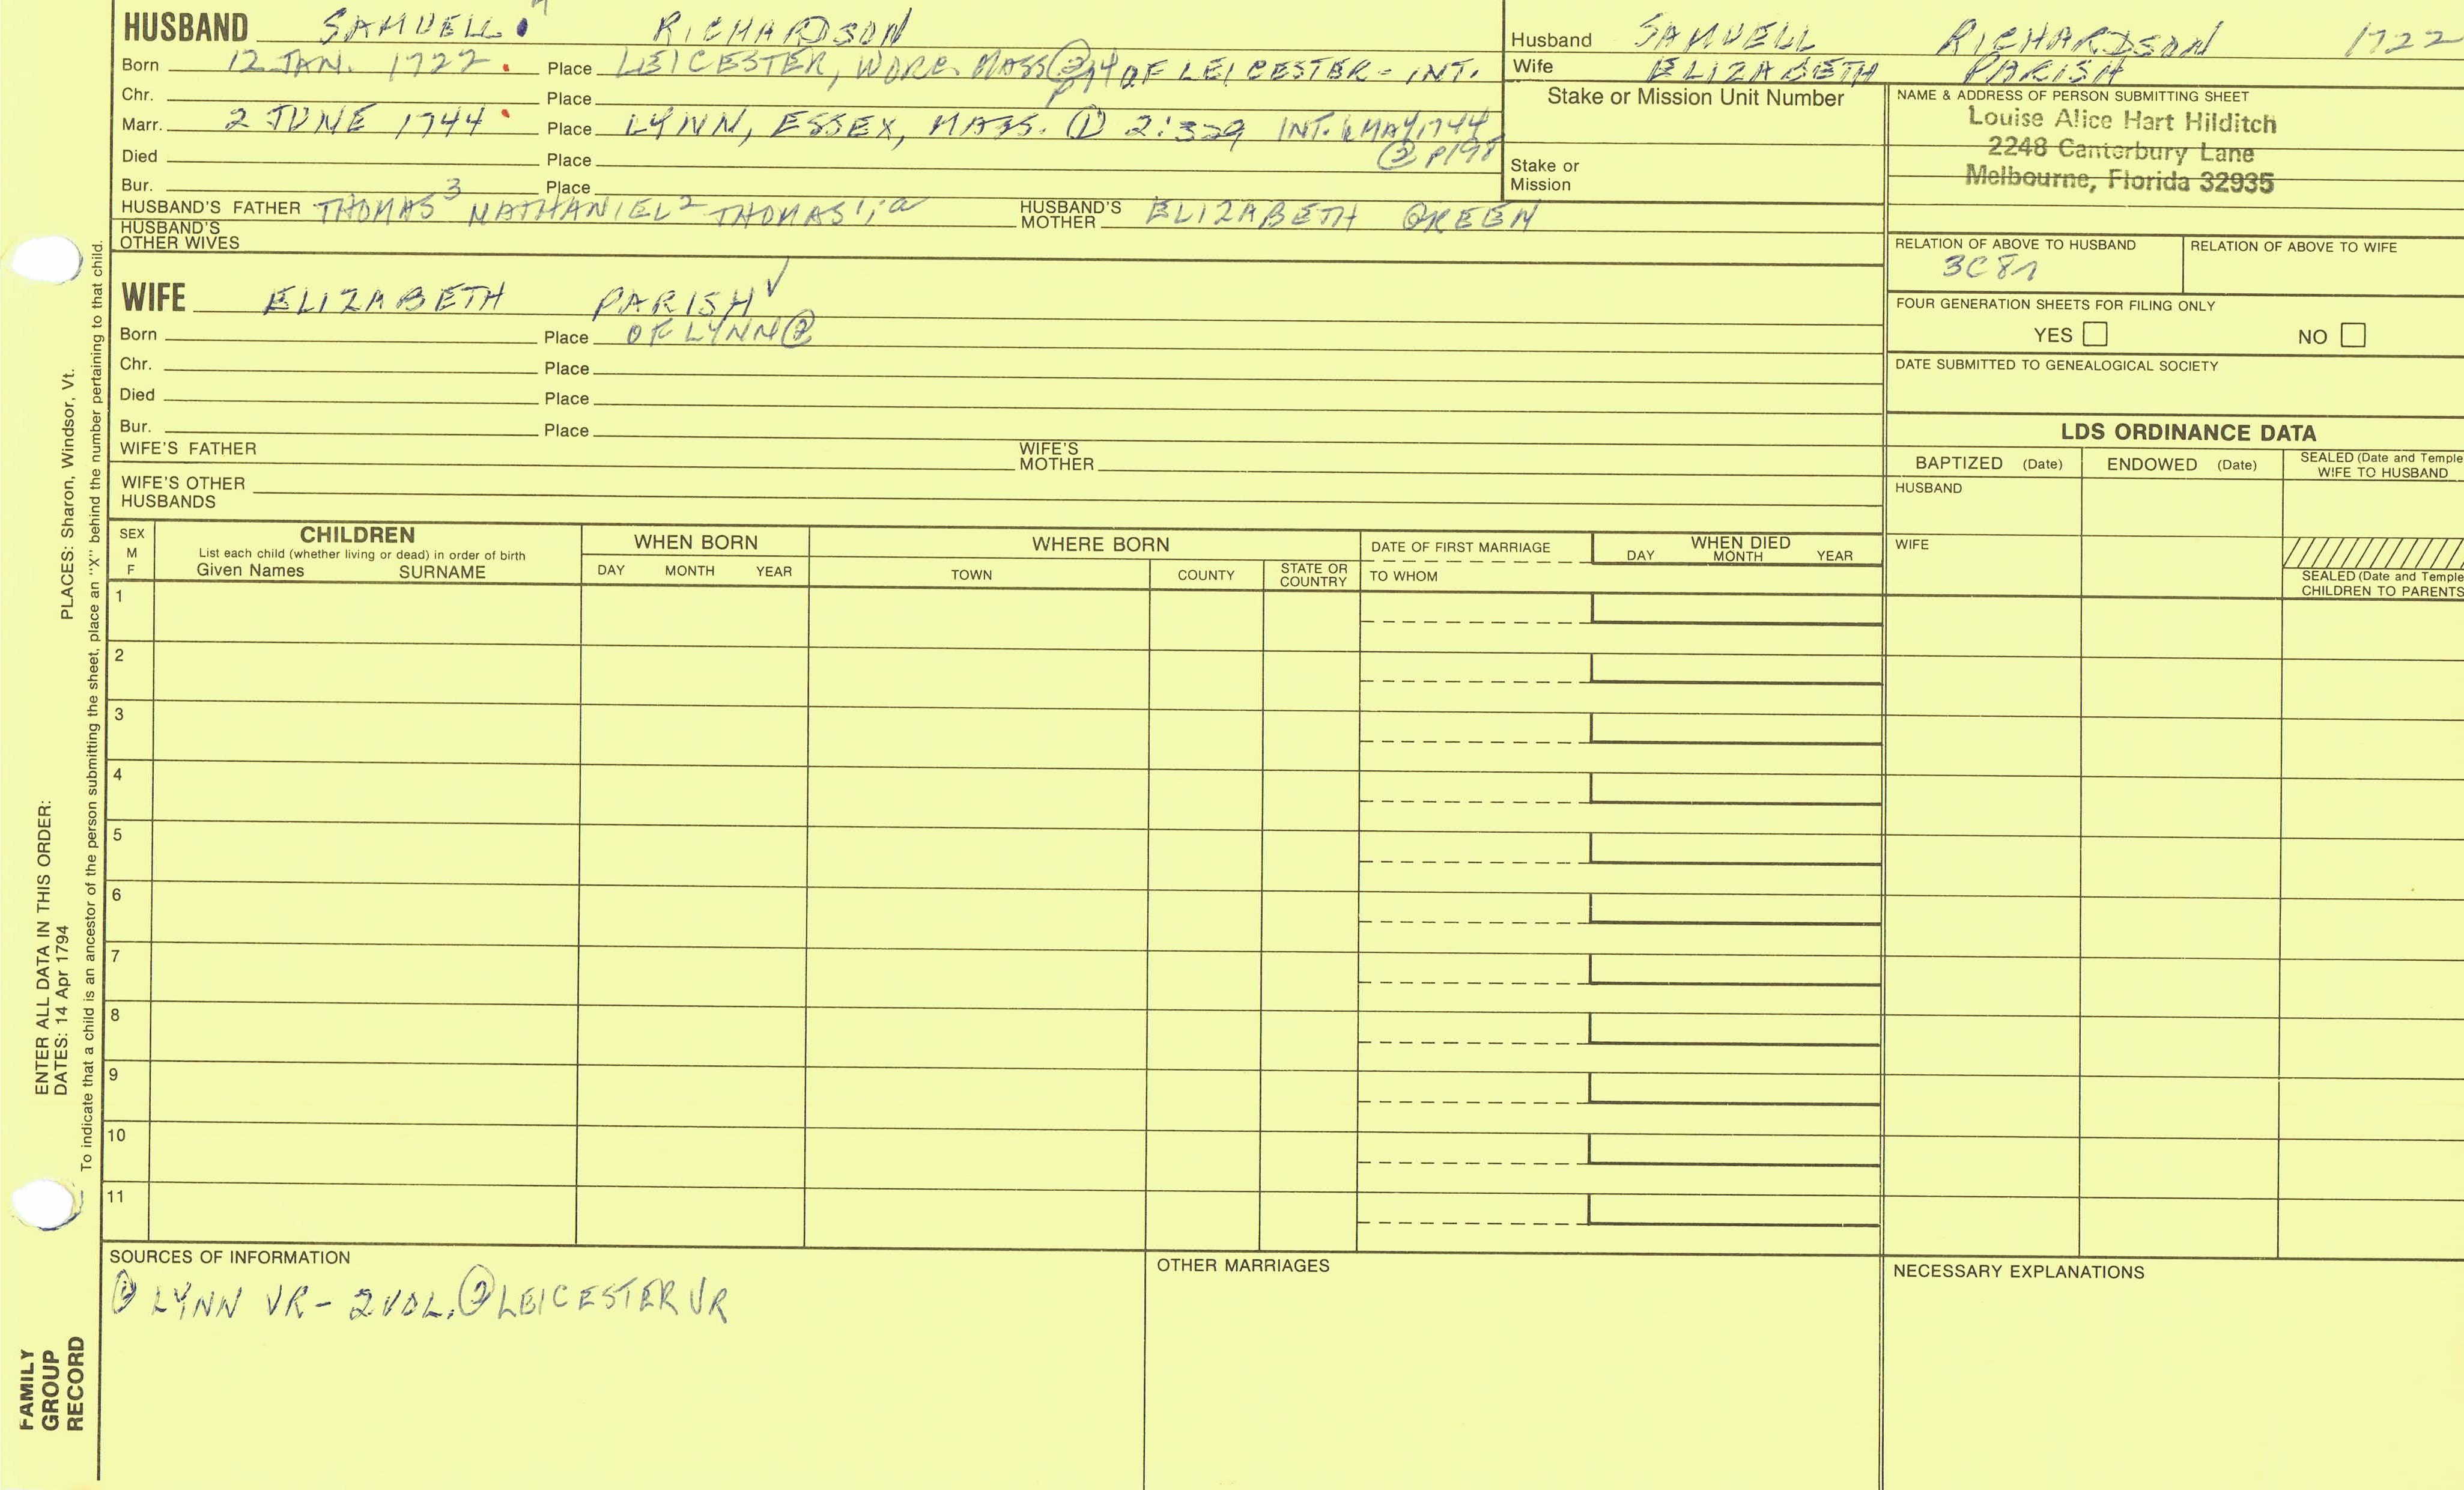 HUSBAND SAMUELL RICHARDSON
Born 12 JAN. 1722. Place LEICESTER, WORC. MASS ② p74 OF LEICESTER - INT.
Chr. Place
Marr. 2 JUNE 1744 Place LYNN, ESSEX, MASS. ① 2:329 INT. 6 MAY 1744
② P198
Died Place
Bur. Place
HUSBAND'S FATHER THOMAS³ NATHANIEL² THOMAS¹,ᵃ HUSBAND'S MOTHER ELIZABETH GREEN
HUSBAND'S OTHER WIVES
Husband SAMUELL RICHARDSON 1722
Wife ELIZABETH PARISH
Stake or Mission Unit Number
Stake or Mission
NAME & ADDRESS OF PERSON SUBMITTING SHEET
Louise Alice Hart Hilditch
2248 Canterbury Lane
Melbourne, Florida 32935
RELATION OF ABOVE TO HUSBAND RELATION OF ABOVE TO WIFE
3C8r
FOUR GENERATION SHEETS FOR FILING ONLY
YES NO
DATE SUBMITTED TO GENEALOGICAL SOCIETY
WIFE ELIZABETH PARISH ✓
Born Place OF LYNN ②
Chr. Place
Died Place
Bur. Place
WIFE'S FATHER WIFE'S MOTHER
WIFE'S OTHER HUSBANDS
LDS ORDINANCE DATA
BAPTIZED (Date) ENDOWED (Date) SEALED (Date and Temple
WIFE TO HUSBAND
HUSBAND
WIFE
SEALED (Date and Temple
CHILDREN TO PARENTS
SEX
M
F
CHILDREN
List each child (whether living or dead) in order of birth
Given Names SURNAME
WHEN BORN
DAY MONTH YEAR
WHERE BORN
TOWN COUNTY STATE OR COUNTRY
DATE OF FIRST MARRIAGE
TO WHOM
WHEN DIED
DAY MONTH YEAR
1
2
3
4
5
6
7
8
9
10
11
SOURCES OF INFORMATION
① LYNN VR - 2 VOL. ② LEICESTER VR
OTHER MARRIAGES
NECESSARY EXPLANATIONS
ENTER ALL DATA IN THIS ORDER:
DATES: 14 Apr 1794
PLACES: Sharon, Windsor, Vt.
To indicate that a child is an ancestor of the person submitting the sheet, place an "X" behind the number pertaining to that child.
FAMILY
GROUP
RECORD